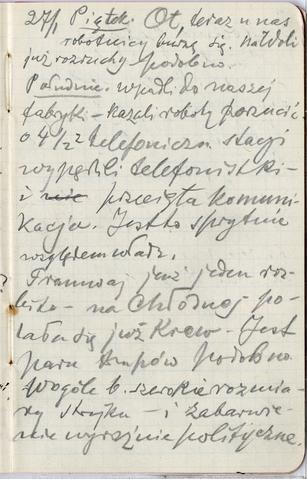 27/I Piątek. Ot, teraz u nas
robotnicy burzą się. Na Woli
już rozruchy podobno.
Południe. wpadli do naszej
fabryki – kazali roboty porzucić.
o 4 1/2 z telefoniczn. stacji
wypędzili telefonistki –
i nie przecięta komuni-
kacja. Jest to sprytnie
względem władz.
Tramwaj już jeden roz-
bito – na Chłodnej po-
lała się już krew – Jest
paru trupów podobno
Wogóle b. szerokie rozmia-
ry strejku – i zabarwie-
nie wyraźnie polityczne.